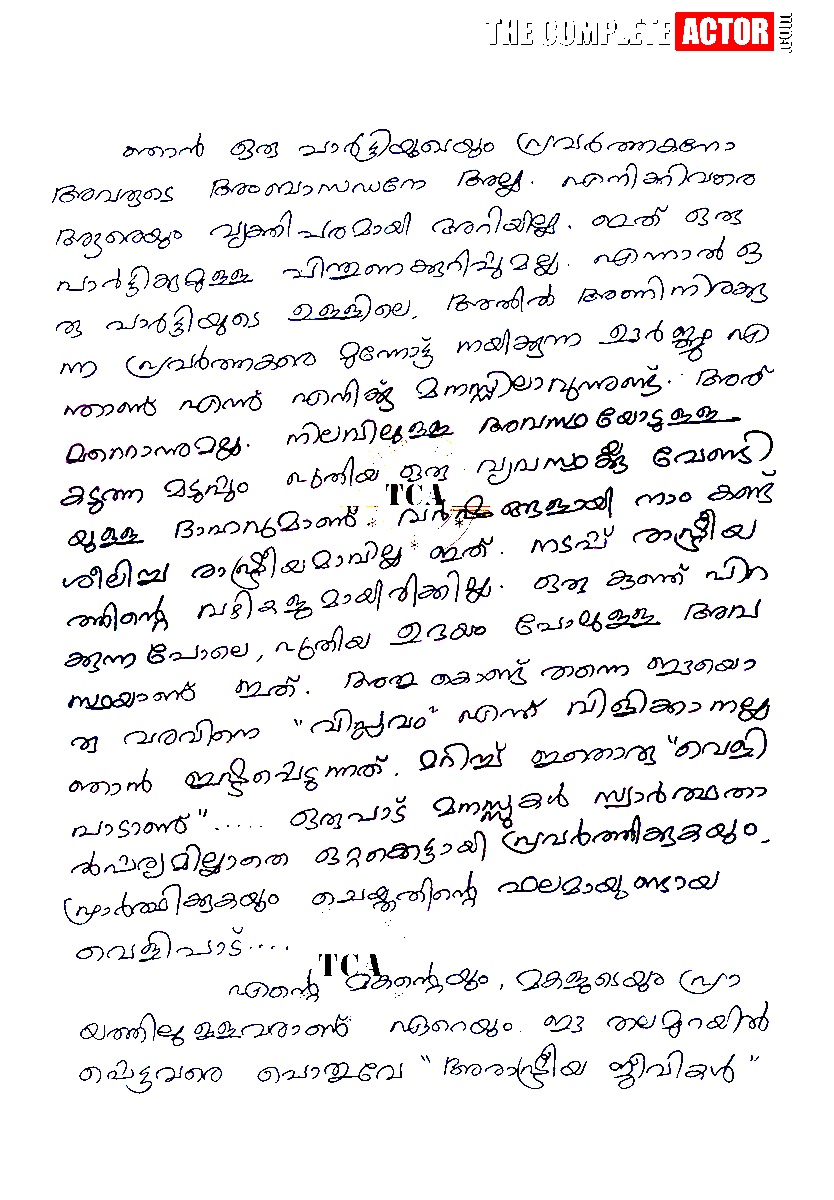 THE COMPLETE ACTOR
ഞാൻ ഒരു പാർട്ടിയുടെയും പ്രവർത്തകനോ
അവരുടെ അംബാസഡനോ അല്ല. എനിക്കിവരെ
ആരെയും വ്യക്തിപരമായി അറിയില്ല. ഇത് ഒരു
പാർട്ടിക്കുമുള്ള പിന്തുണക്കുറിപ്പുമല്ല. എന്നാൽ ഒ
രു പാർട്ടിയുടെ ഉള്ളിലെ, അതിൽ അണിനിരക്കു
ന്ന പ്രവർത്തകരെ മുന്നോട്ട് നയിക്കുന്ന ഊർജ്ജം എ
ന്താണ് എന്ന് എനിക്കു മനസ്സിലാവുന്നുണ്ട്. അത്
മറ്റൊന്നുമല്ല. നിലവിലുള്ള അവസ്ഥയോടുള്ള
കടുത്ത മടുപ്പും പുതിയ ഒരു വ്യവസ്ഥക്കു വേണ്ടി
യുള്ള ദാഹവുമാണ് വർഷങ്ങളായി നാം കണ്ട്
ശീലിച്ച രാഷ്ട്രീയമാവില്ല ഇത്. നടപ്പ് രാഷ്ട്രീയ
ത്തിന്റെ വഴികളുമായിരിക്കില്ല. ഒരു കുഞ്ഞ് പിറ
ക്കുന്ന പോലെ, പുതിയ ഉദയം പോലുള്ള അവ
സ്ഥയാണ് ഇത്. അതു കൊണ്ട് തന്നെ ഇയൊ
രു വരവിനെ "വിപ്ലവം" എന്ന് വിളിക്കാനല്ല
ഞാൻ ഇഷ്ടപ്പെടുന്നത്. മറിച്ച് ഇതൊരു "വെളി
പാടാണ്"..... ഒരുപാട് മനസ്സുകൾ സ്വാർത്ഥതാ
ൽപര്യമില്ലാതെ ഒറ്റക്കെട്ടായി പ്രവർത്തിക്കുകയും,
പ്രാർത്ഥിക്കുകയും ചെയ്തതിന്റെ ഫലമായുണ്ടായ
വെളിപാട്....
എന്റെ മകന്റെയും, മകളുടെയും പ്രാ
യത്തിലുള്ളവരാണ് ഏറെയും. ഈ തലമുറയിൽ
പ്പെട്ടവരെ പൊതുവേ "അരാഷ്ട്രീയ ജീവികൾ"
TCA
TCA